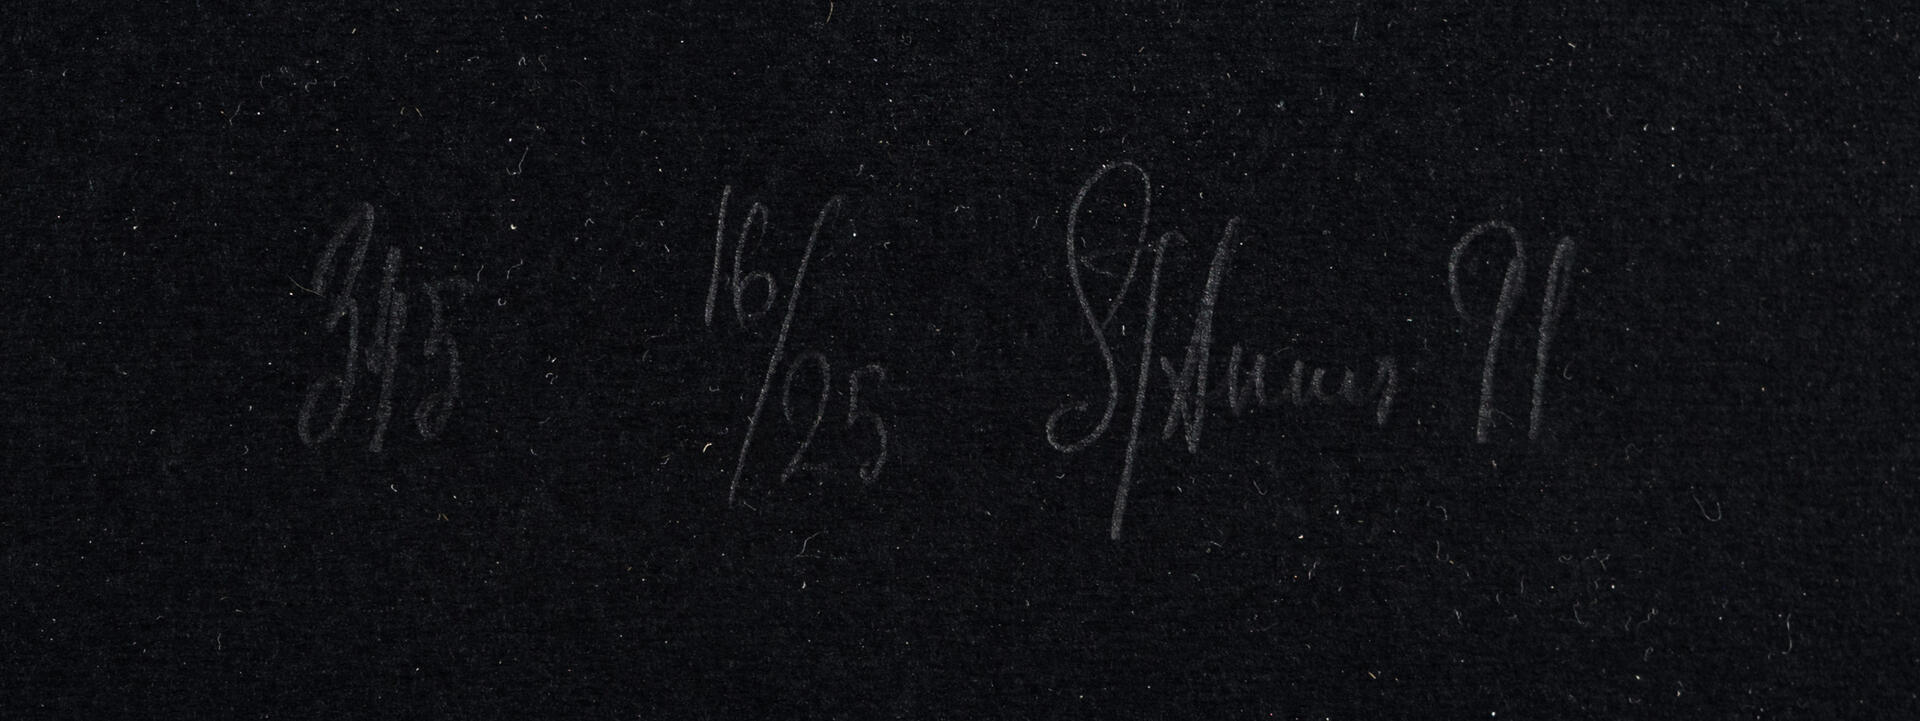 345 16/25 91